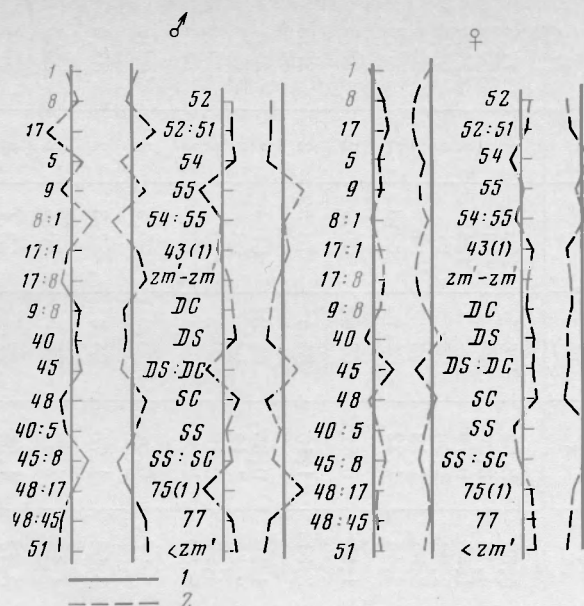 ♂
♀
1
8
17
5
9
8:1
17:1
17:8
9:8
40
45
48
40:5
45:8
48:17
48:45
51
52
52:51
54
55
54:55
43(1)
zm'-zm
DC
DS
DS:DC
SC
SS
SS:SC
75(1)
77
<zm'
1
8
17
5
9
8:1
17:1
17:8
9:8
40
45
48
40:5
45:8
48:17
48:45
51
52
52:51
54
55
54:55
43(1)
zm'-zm
DC
DS
DS:DC
SC
SS
SS:SC
75(1)
77
<zm'
1
2